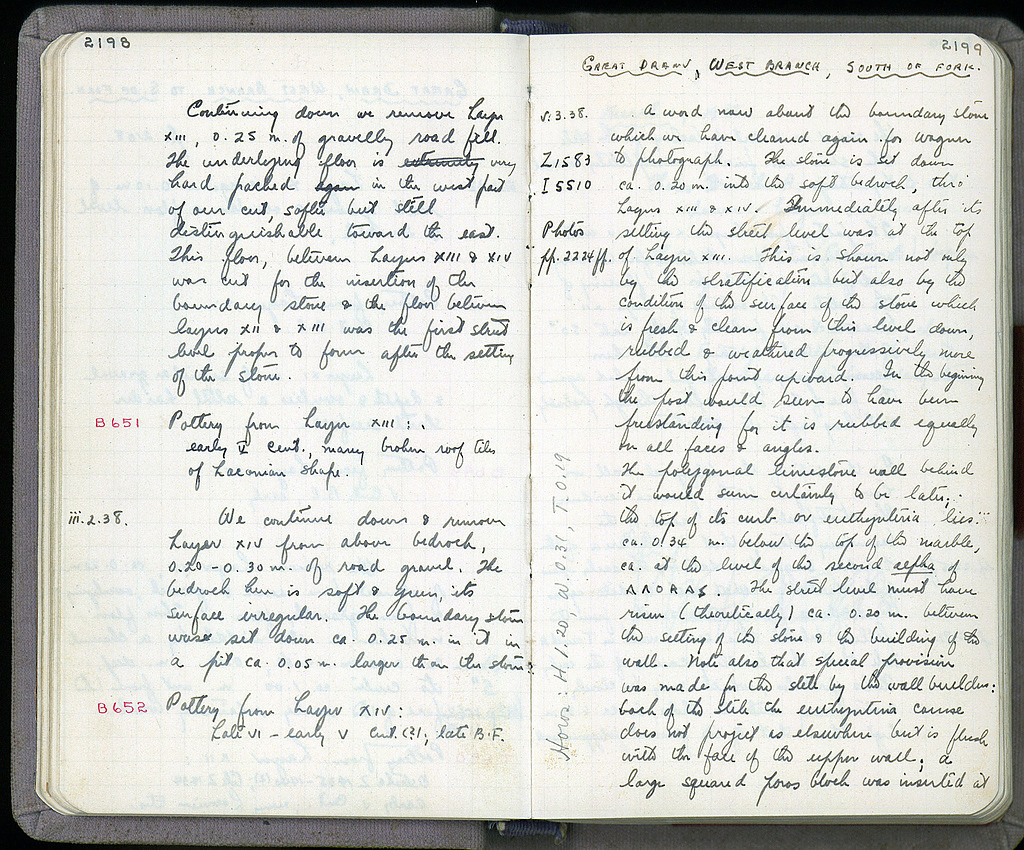 2198
Continuing down we remove Layer
XIII, 0.25 m. of gravelly road fill.
The underlying floor is extremely very
hard packed again in the west part
of our cut, softer but still
distinguishable toward the east.
This floor, between Layers XIII & XIV
was cut for the insertion of the
boundary stone & the floor between
layers XII & XIII was the first street
level proper to form after the setting
of the stone.
B 651 Pottery from Layer XIII:
early V cent., many broken roof tiles
of Laconian shape.
iii.2.38. We continue down & remove
Layer XIV from above bedrock,
0.20 - 0.30 m. of road gravel. The
bedrock here is soft & green, its
surface irregular. The boundary stone
was set down ca. 0.25 m. in it in
a pit ca. 0.05 m. larger than the stone.
B 652 Pottery from Layer XIV:
Late VI - early V cent. (?), late B.F.
2199
GREAT DRAIN, WEST BRANCH, SOUTH OF FORK.
v.3.38. A word now about the boundary stone
which we have cleaned again for Wagner
Z1583 to photograph. The stone is set down
I 5510 ca. 0.20 m. into the soft bedrock, thro'
Layers XIII & XIV. Immediately after its
Photos setting the street level was at the top
pp. 2224 ff. of Layer XIII. This is shown not only
by the stratification but also by the
condition of the surface of the stone which
is fresh & clean from this level down,
rubbed & weathered progressively more
from this point upward. In the beginning
the post would seem to have been
freestanding for it is rubbed equally
on all faces & angles.
The polygonal limestone wall behind
it would seem certainly to be later;
the top of its curb or euthynteria lies
ca. 0.34 m. below the top of the marble,
ca. at the level of the second alpha of
ΑΛΟΡΑΣ. The street level must have
risen (theoretically) ca. 0.20 m. between
the setting of the stone & the building of the
wall. Note also that special provision
was made for the stele by the wall builders:
back of the stele the euthynteria course
does not project as elsewhere but is flush
with the face of the upper wall; a
large squared poros block was inserted at
Horos: H. 1.20, W. 0.31, T. 0.19